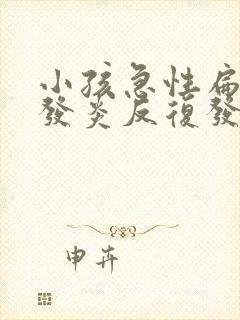 小孩急性扁
發炎反復發
申卉